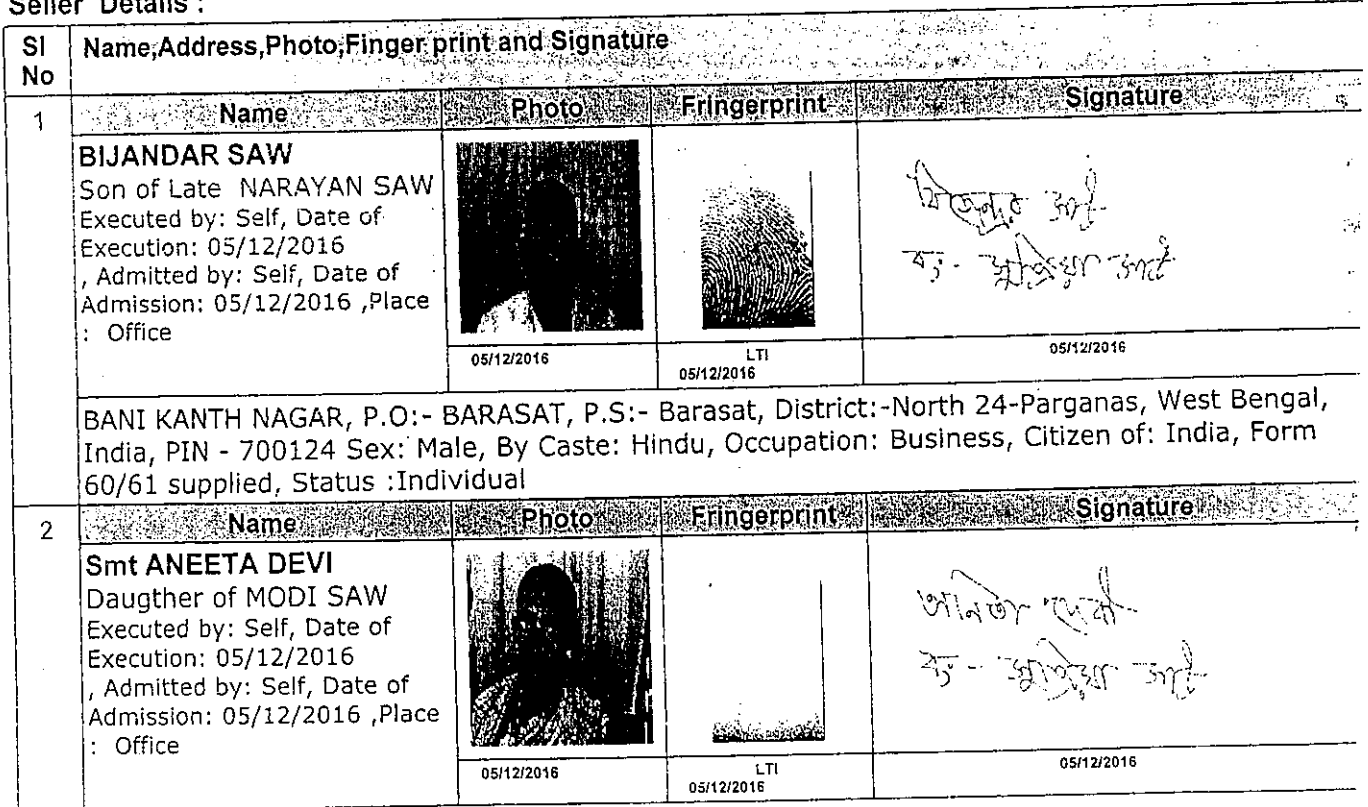 Seller Details :
SI No
Name,Address,Photo,Finger print and Signature
1
Name Photo Fringerprint Signature
BIJANDAR SAW
Son of Late NARAYAN SAW
Executed by: Self, Date of
Execution: 05/12/2016
, Admitted by: Self, Date of
Admission: 05/12/2016 ,Place
: Office
05/12/2016
LTI
05/12/2016
05/12/2016
BANI KANTH NAGAR, P.O:- BARASAT, P.S:- Barasat, District:-North 24-Parganas, West Bengal,
India, PIN - 700124 Sex: Male, By Caste: Hindu, Occupation: Business, Citizen of: India, Form
60/61 supplied, Status :Individual
2
Name Photo Fringerprint Signature
Smt ANEETA DEVI
Daugther of MODI SAW
Executed by: Self, Date of
Execution: 05/12/2016
, Admitted by: Self, Date of
Admission: 05/12/2016 ,Place
: Office
আনিতা দেবী
05/12/2016
LTI
05/12/2016
05/12/2016